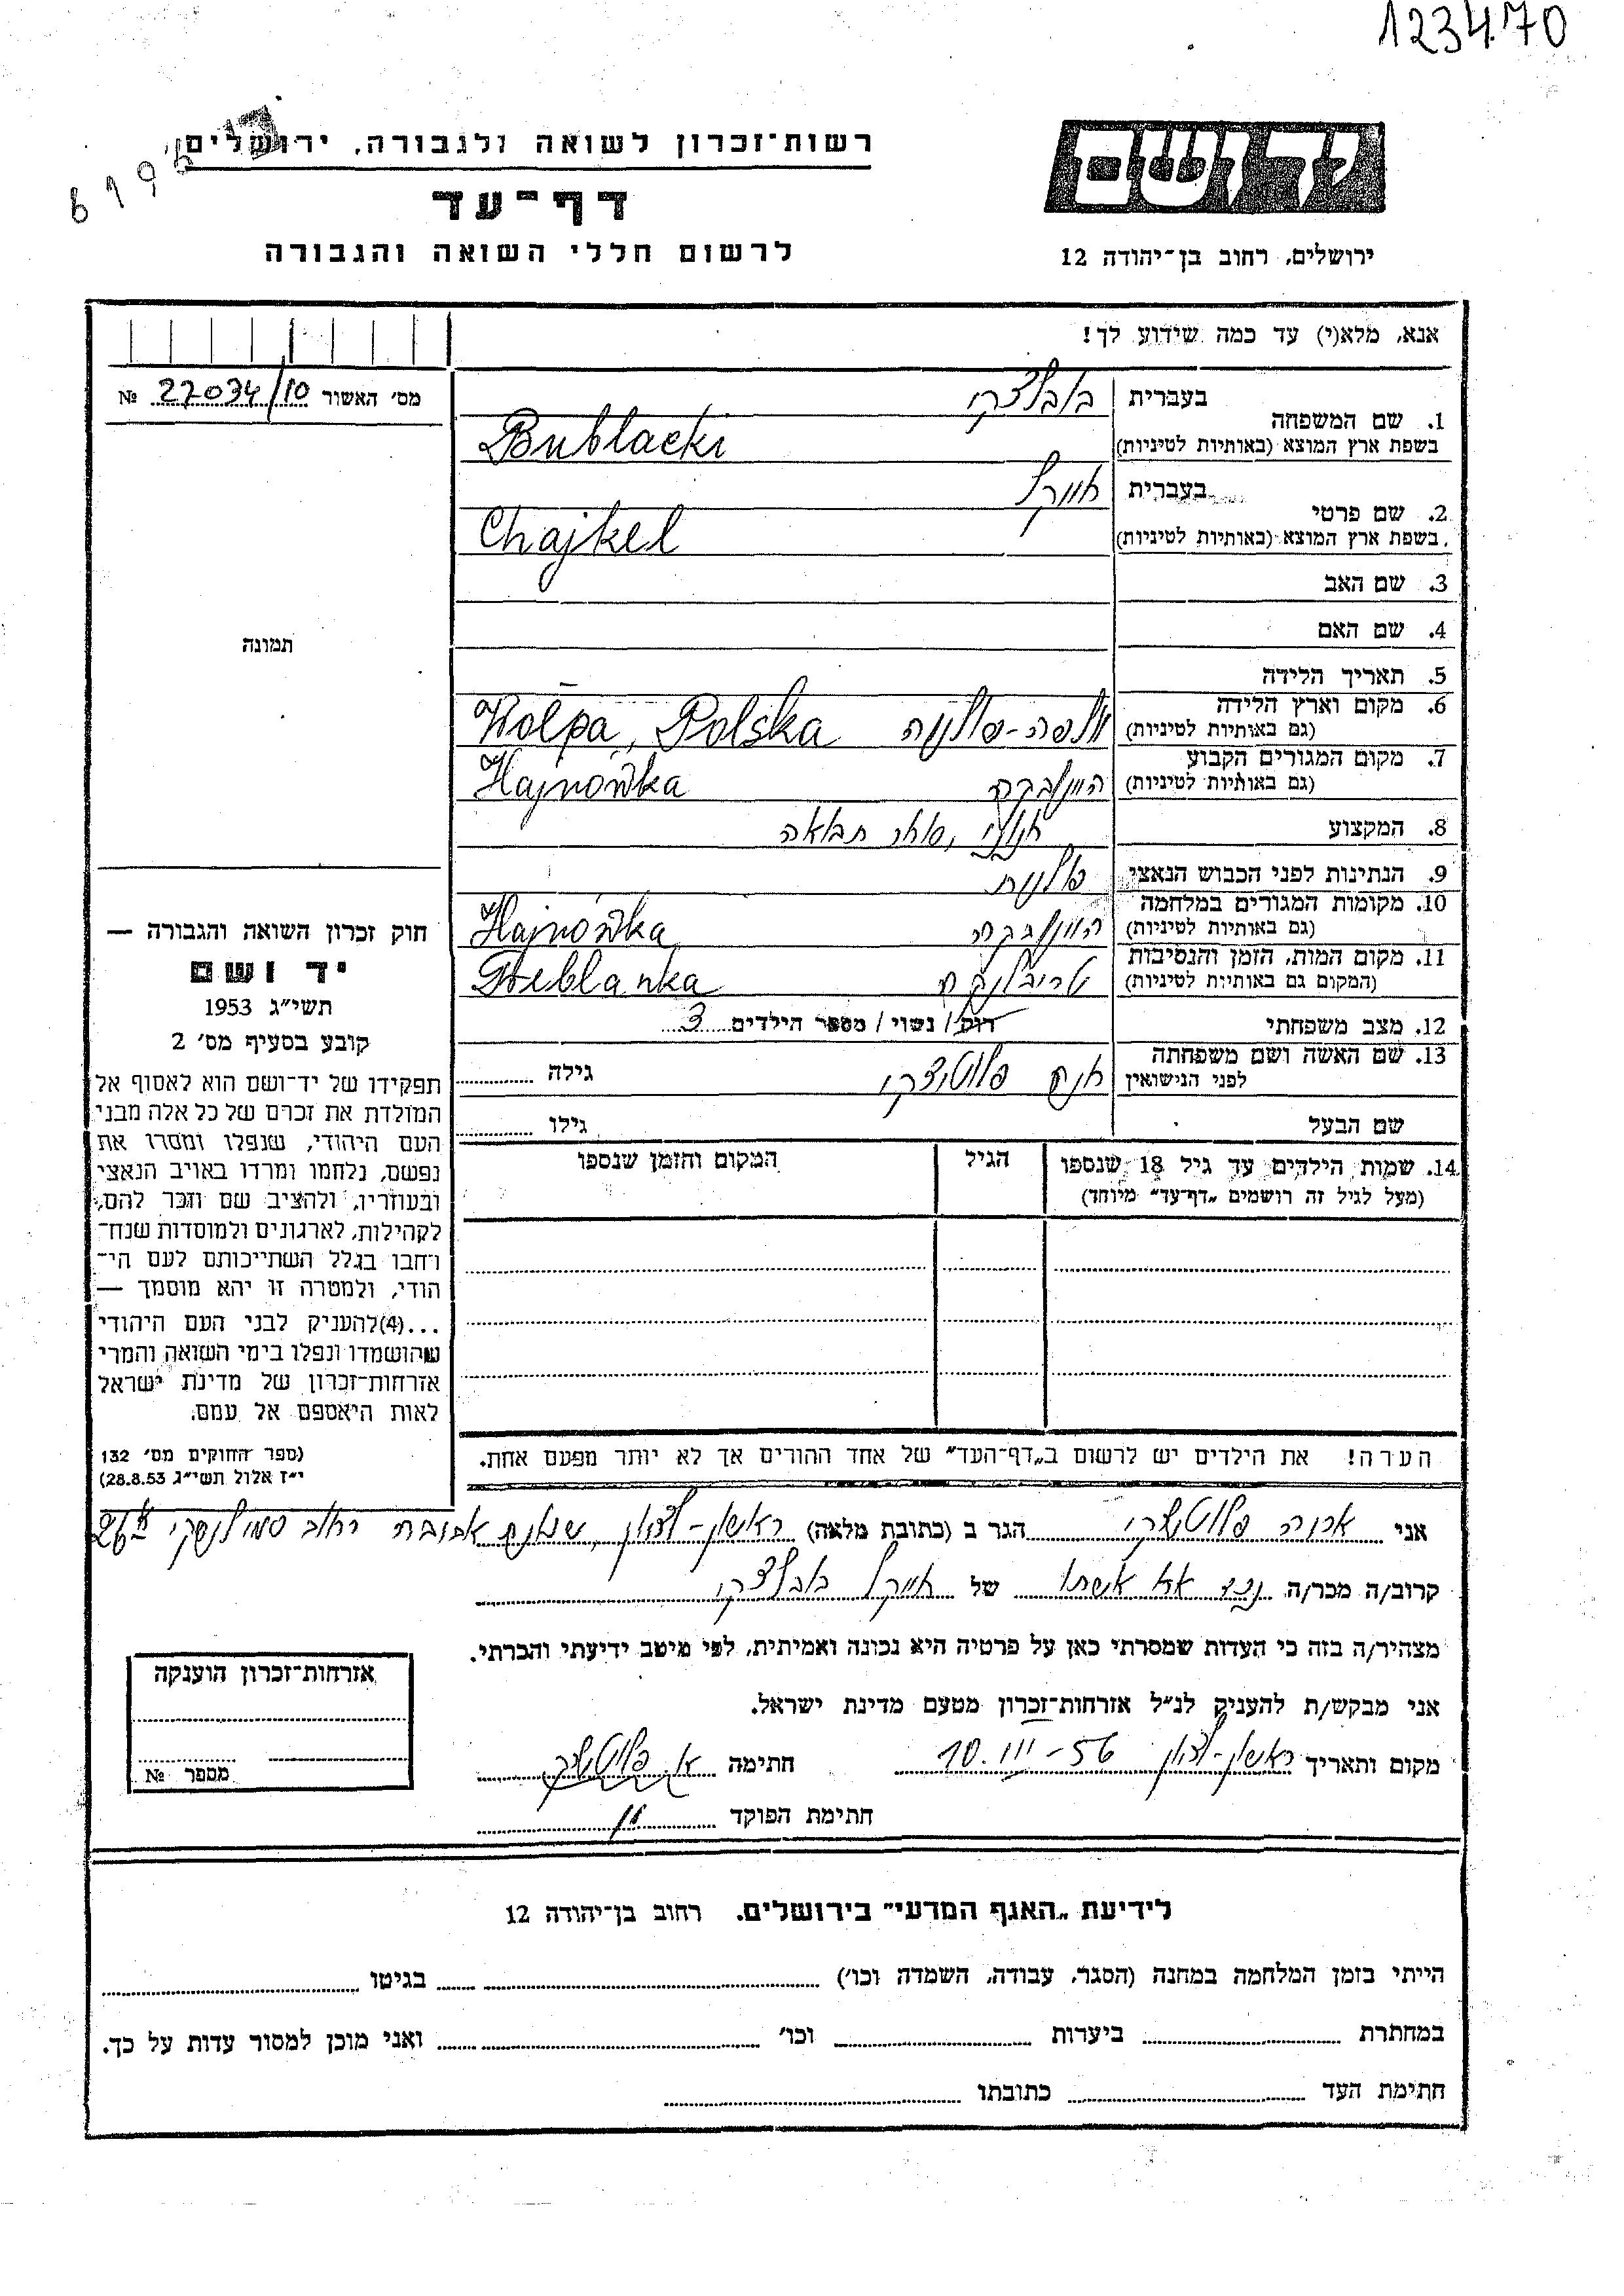 123470
6196
רשות־זכרון לשואה ולגבורה, ירושלים
דף־עד
לרשום חללי השואה והגבורה
יד ושם
ירושלים, רחוב בן־יהודה 12
אנא, מלא(י) עד כמה שידוע לך!
מס׳ האשור 27034/10 №
1. שם המשפחה בעברית בובלצקי
בשפת ארץ המוצא (באותיות לטיניות) Bublacki
2. שם פרטי בעברית חייקל
בשפת ארץ המוצא (באותיות לטיניות) Chajkel
3. שם האב
4. שם האם
5. תאריך הלידה –
6. מקום וארץ הלידה
(גם באותיות לטיניות) וולפה-פולניה Wolpa, Polska
7. מקום המגורים הקבוע
(גם באותיות לטיניות) היינובקה Hajnówka
8. המקצוע חנוני, סוחר תבואה
9. הנתינות לפני הכבוש הנאצי פולנית
10. מקומות המגורים במלחמה
(גם באותיות לטיניות) היינובקה Hajnówka
11. מקום המות, הזמן והנסיבות
(המקום גם באותיות לטיניות) טרבלינקה Treblanka
12. מצב משפחתי רווק / נשוי / מספר הילדים 3
13. שם האשה ושם משפחתה
לפני הנישואין פלוטצקי גילה
שם הבעל גילו
14. שמות הילדים עד גיל 18 שנספו הגיל המקום והזמן שנספו
(מעל לגיל זה רושמים „דף־עד״ מיוחד)
הערה! את הילדים יש לרשום ב„דף־העד״ של אחד ההורים אך לא יותר מפעם אחת.
תמונה
חוק זכרון השואה והגבורה —
יד ושם
תשי״ג 1953
קובע בסעיף מס׳ 2
תפקידו של יד־ושם הוא לאסוף אל
המולדת את זכרם של כל אלה מבני
העם היהודי, שנפלו ומסרו את
נפשם, נלחמו ומרדו באויב הנאצי
ובעוזריו, ולהציב שם וזכר להם,
לקהילות, לארגונים ולמוסדות שנח־
רחבו בגלל השתייכותם לעם הי־
הודי, ולמטרה זו יהא מוסמך —
...(4) להעניק לבני העם היהודי
שהושמדו ונפלו בימי השואה והמרי
אזרחות־זכרון של מדינת ישראל
לאות היאספם אל עמם.
(ספר החוקים מס׳ 132
י״ז אלול תשי״ג 28.8.53)
אני פלוטצקי הגר ב (כתובת מלאה) ראשון-לציון, רחוב סמילנסקי
קרוב/ה מכר/ה נכד אח אשתו של חייקל בובלצקי
מצהיר/ה בזה כי העדות שמסרתי כאן על פרטיה היא נכונה ואמיתית, לפי מיטב ידיעתי והכרתי.
אני מבקש/ת להעניק לנ״ל אזרחות־זכרון מטעם מדינת ישראל.
מקום ותאריך ראשון-לציון 10.III-56 חתימה א פלוטצקי
חתימת הפוקד
אזרחות־זכרון הוענקה
מספר №
לידיעת „האגף המדעי״ בירושלים. רחוב בן־יהודה 12
הייתי בזמן המלחמה במחנה (הסגר, עבודה, השמדה וכו׳) בגיטו
במחתרת ביערות וכו׳ ואני מוכן למסור עדות על כך.
חתימת העד כתובתו